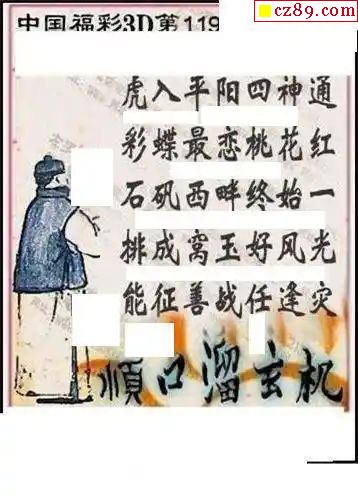 cz89.com
中国福彩3D第119
虎入平阳四神通
彩蝶最恋桃花红
石矶西畔终始一
排成窝玉好风光
能征善战任逢灾
顺口溜玄机